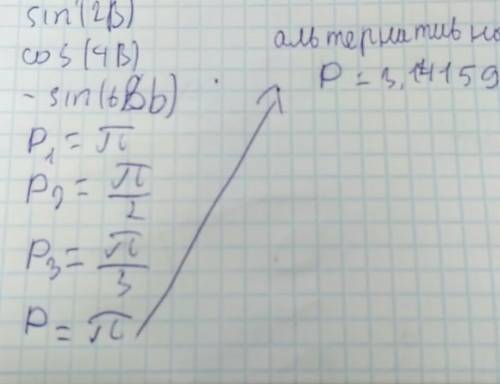 sin(2B)
cos(4B)
- sin(6Bb)
P₁ = π
P₂ = π/2
P₃ = π/3
P = π
альтернативно
P = 3,14159